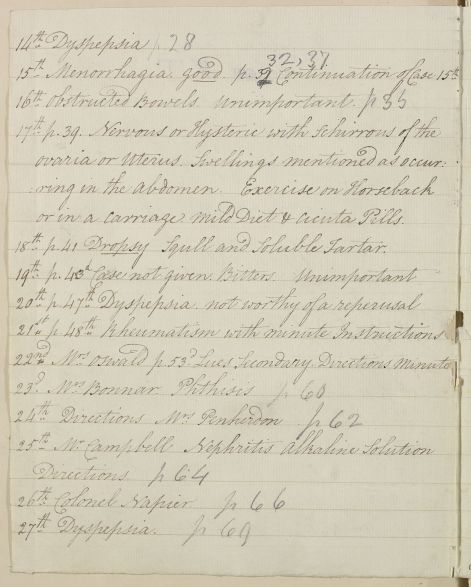 14th Dyspepsia p. 28
32, 37.
15th Menorrhagia. good. p. 32 Continuation of Case 15th
16th Obstructed Bowels. Unimportant. p 35
17th p. 39. Nervous or Hysteric with Schirrous of the
ovaria or Uterus. Swellings mentioned as occur:
:ring in the abdomen. Exercise on Horseback
or in a Carriage mild Diet & Cicuta Pills.
18th p. 41 Dropsy Squll and Soluble Tartar.
19th p. 43d Case not given. Bitters. Unimportant
20th p. 47th Dyspepsia. not worthy of a reperusal
21st p. 48th Rheumatism with minute Instructions
22nd Mrs Oswald p. 53d Lues Secondary. Directions Minute
23d Mrs Bonnar Phthisis p 60
24th Directions Mrs Penherdon p 62
25th Mr Campbell Nephritis Alkaline Solution
Directions p 64
26th Colonel Napier. p 66
27th Dyspepsia. p 69